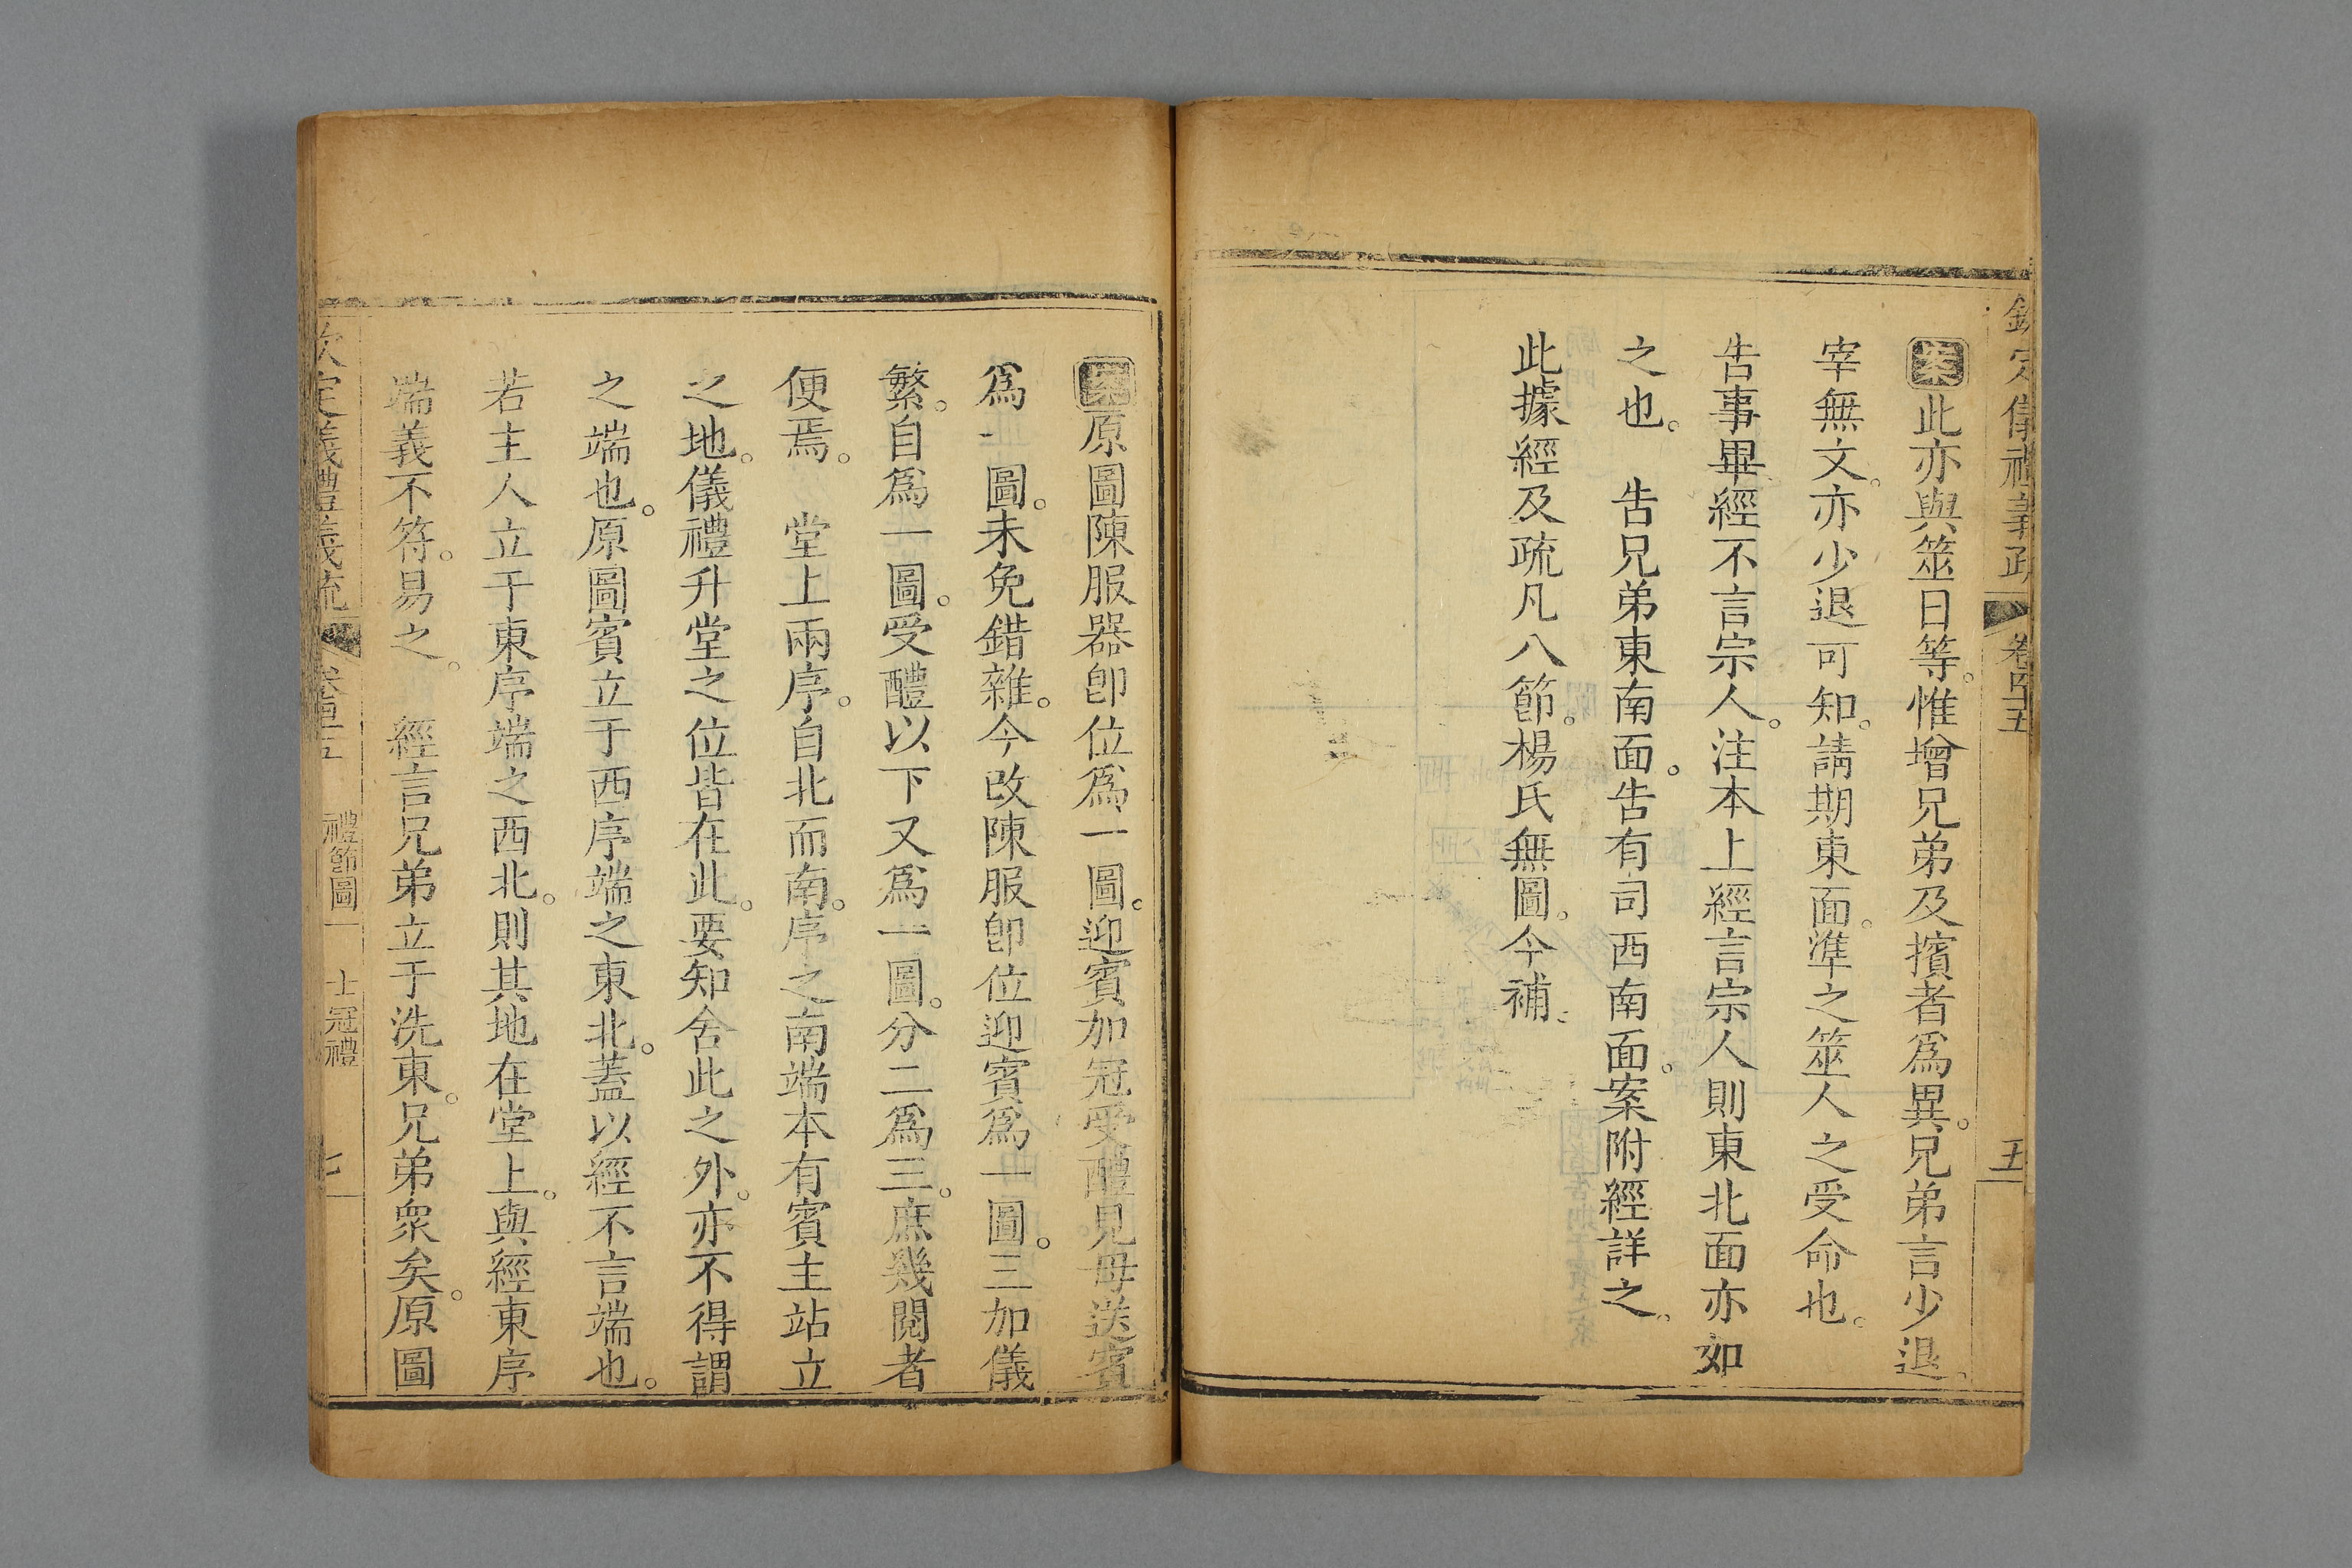 欽定儀禮義疏 卷四十五 五
案此亦與筮日等。惟增兄弟及擯者爲異。兄弟言少退。
宰無文。亦少退可知。請期東面。準之筮人之受命也。
告事畢經不言宗人。注本上經言宗人則東北面亦如
之也。 告兄弟東南面。告有司西南面。案附經詳之。
此據經及疏凡八節。楊氏無圖。今補。
案原圖陳服器卽位爲一圖。迎賓加冠受醴見母送賓
爲一圖。未免錯雜。今改陳服卽位迎賓爲一圖。三加儀
繁。自爲一圖。受醴以下又爲一圖。分二爲三。庶幾閱者
便焉。 堂上兩序。自北而南。序之南端本有賓主站立
之地。儀禮升堂之位皆在此。要知舍此之外。亦不得謂
之端也。原圖賓立于西序端之東北。蓋以經不言端也。
若主人立于東序端之西北。則其地在堂上。與經東序
端義不符。易之。 經言兄弟立于洗東。兄弟衆矣。原圖
欽定義禮義疏 卷四十五 禮節圖一 士冠禮 七